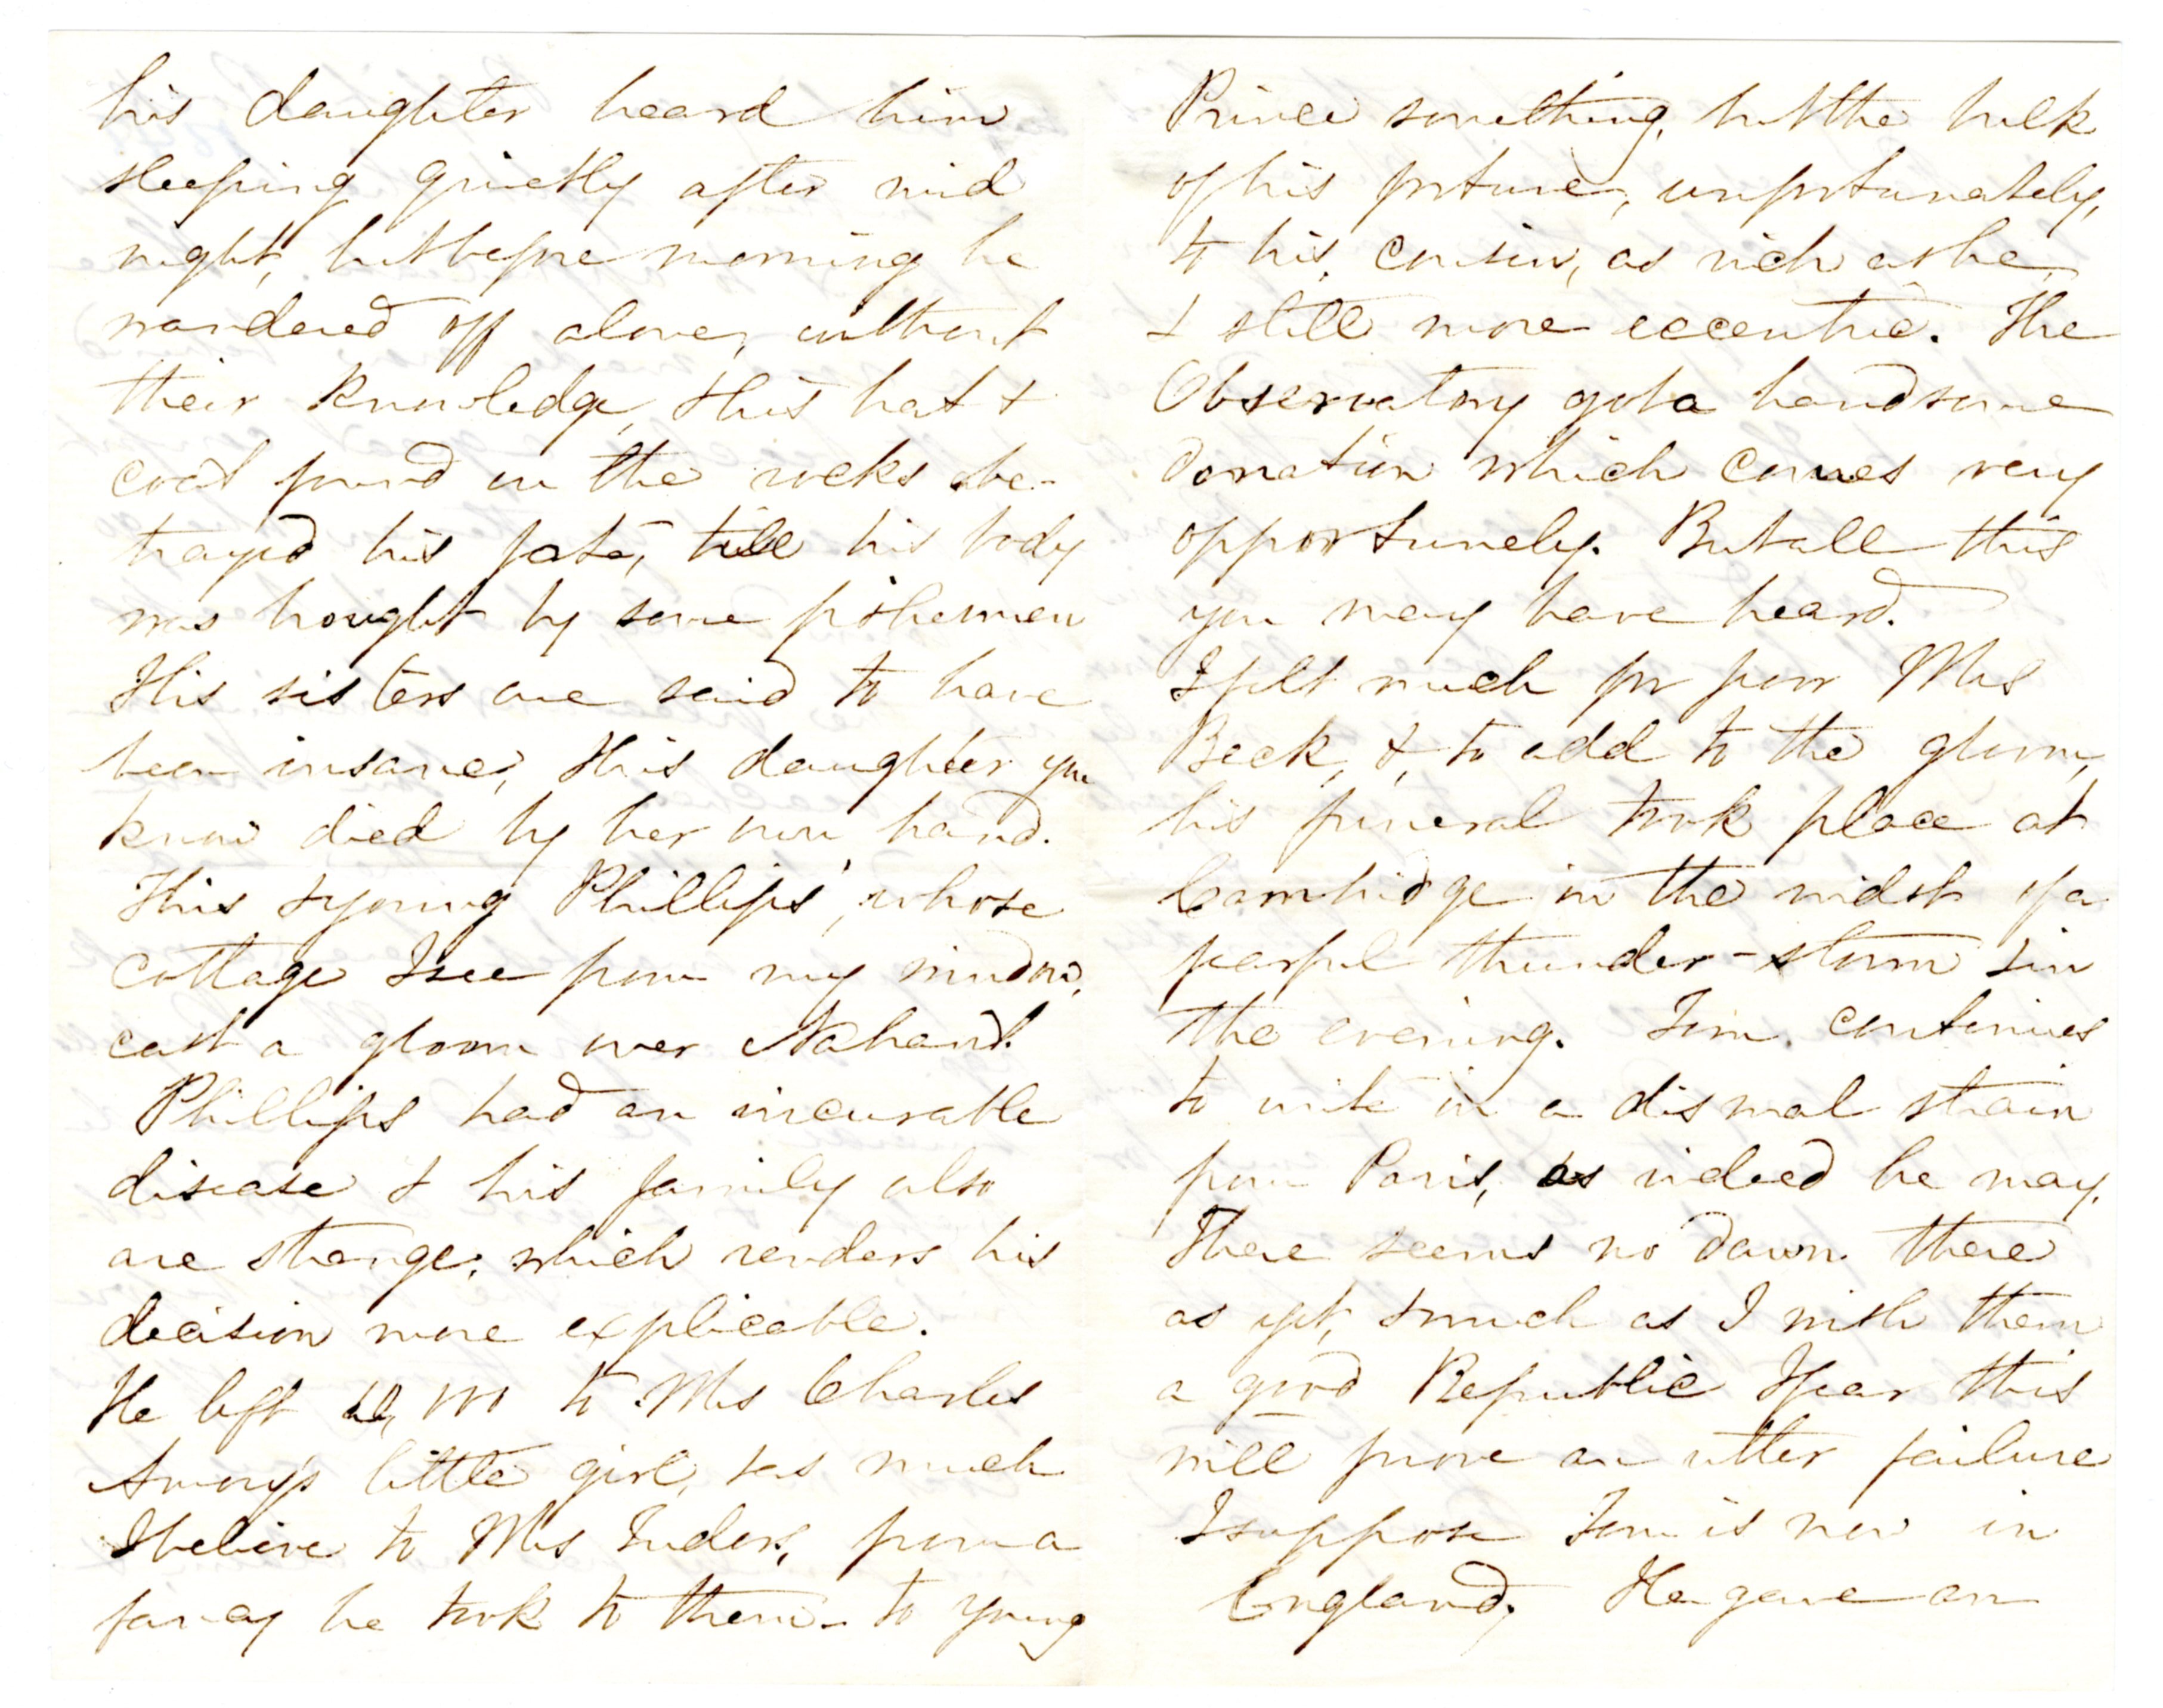 his daughter heard him
sleeping quietly after mid
night, but before morning he
wandered off alone, without
their knowledge, & his hat &
coat found on the rocks be-
trayed his fate, till his body
was brought by some fishermen
His sisters are said to have
been insane, & his daughter you
know died by her own hand.
This & young Phillips', whose
cottage I see from my window,
cast a gloom over Nahant.
Phillips had an incurable
disease & his family also
are strange, which renders his
decision more explicable.
He left 000 to Mrs Charles
Amory's little girl, & as much
I believe to Mrs Tudor's, from a
fancy he took to them - to young
Prince something, but the bulk
of his fortune, unfortunately,
to his cousin, as rich as he,
& still more eccentric. The
Observatory got a handsome
donation which comes very
opportunely. But all this
you may have heard.
I felt much for poor Mrs
Beck, &, to add to the gloom,
his funeral took place at
Cambridge in the midst of a
fearful thunder-storm & in
the evening. Tom continues
to write in a dismal strain
from Paris, as indeed he may.
There seems no dawn there
as yet, & much as I wish them
a good Republic I fear this
will prove an utter failure
I suppose Tom is now in
England. He gave an